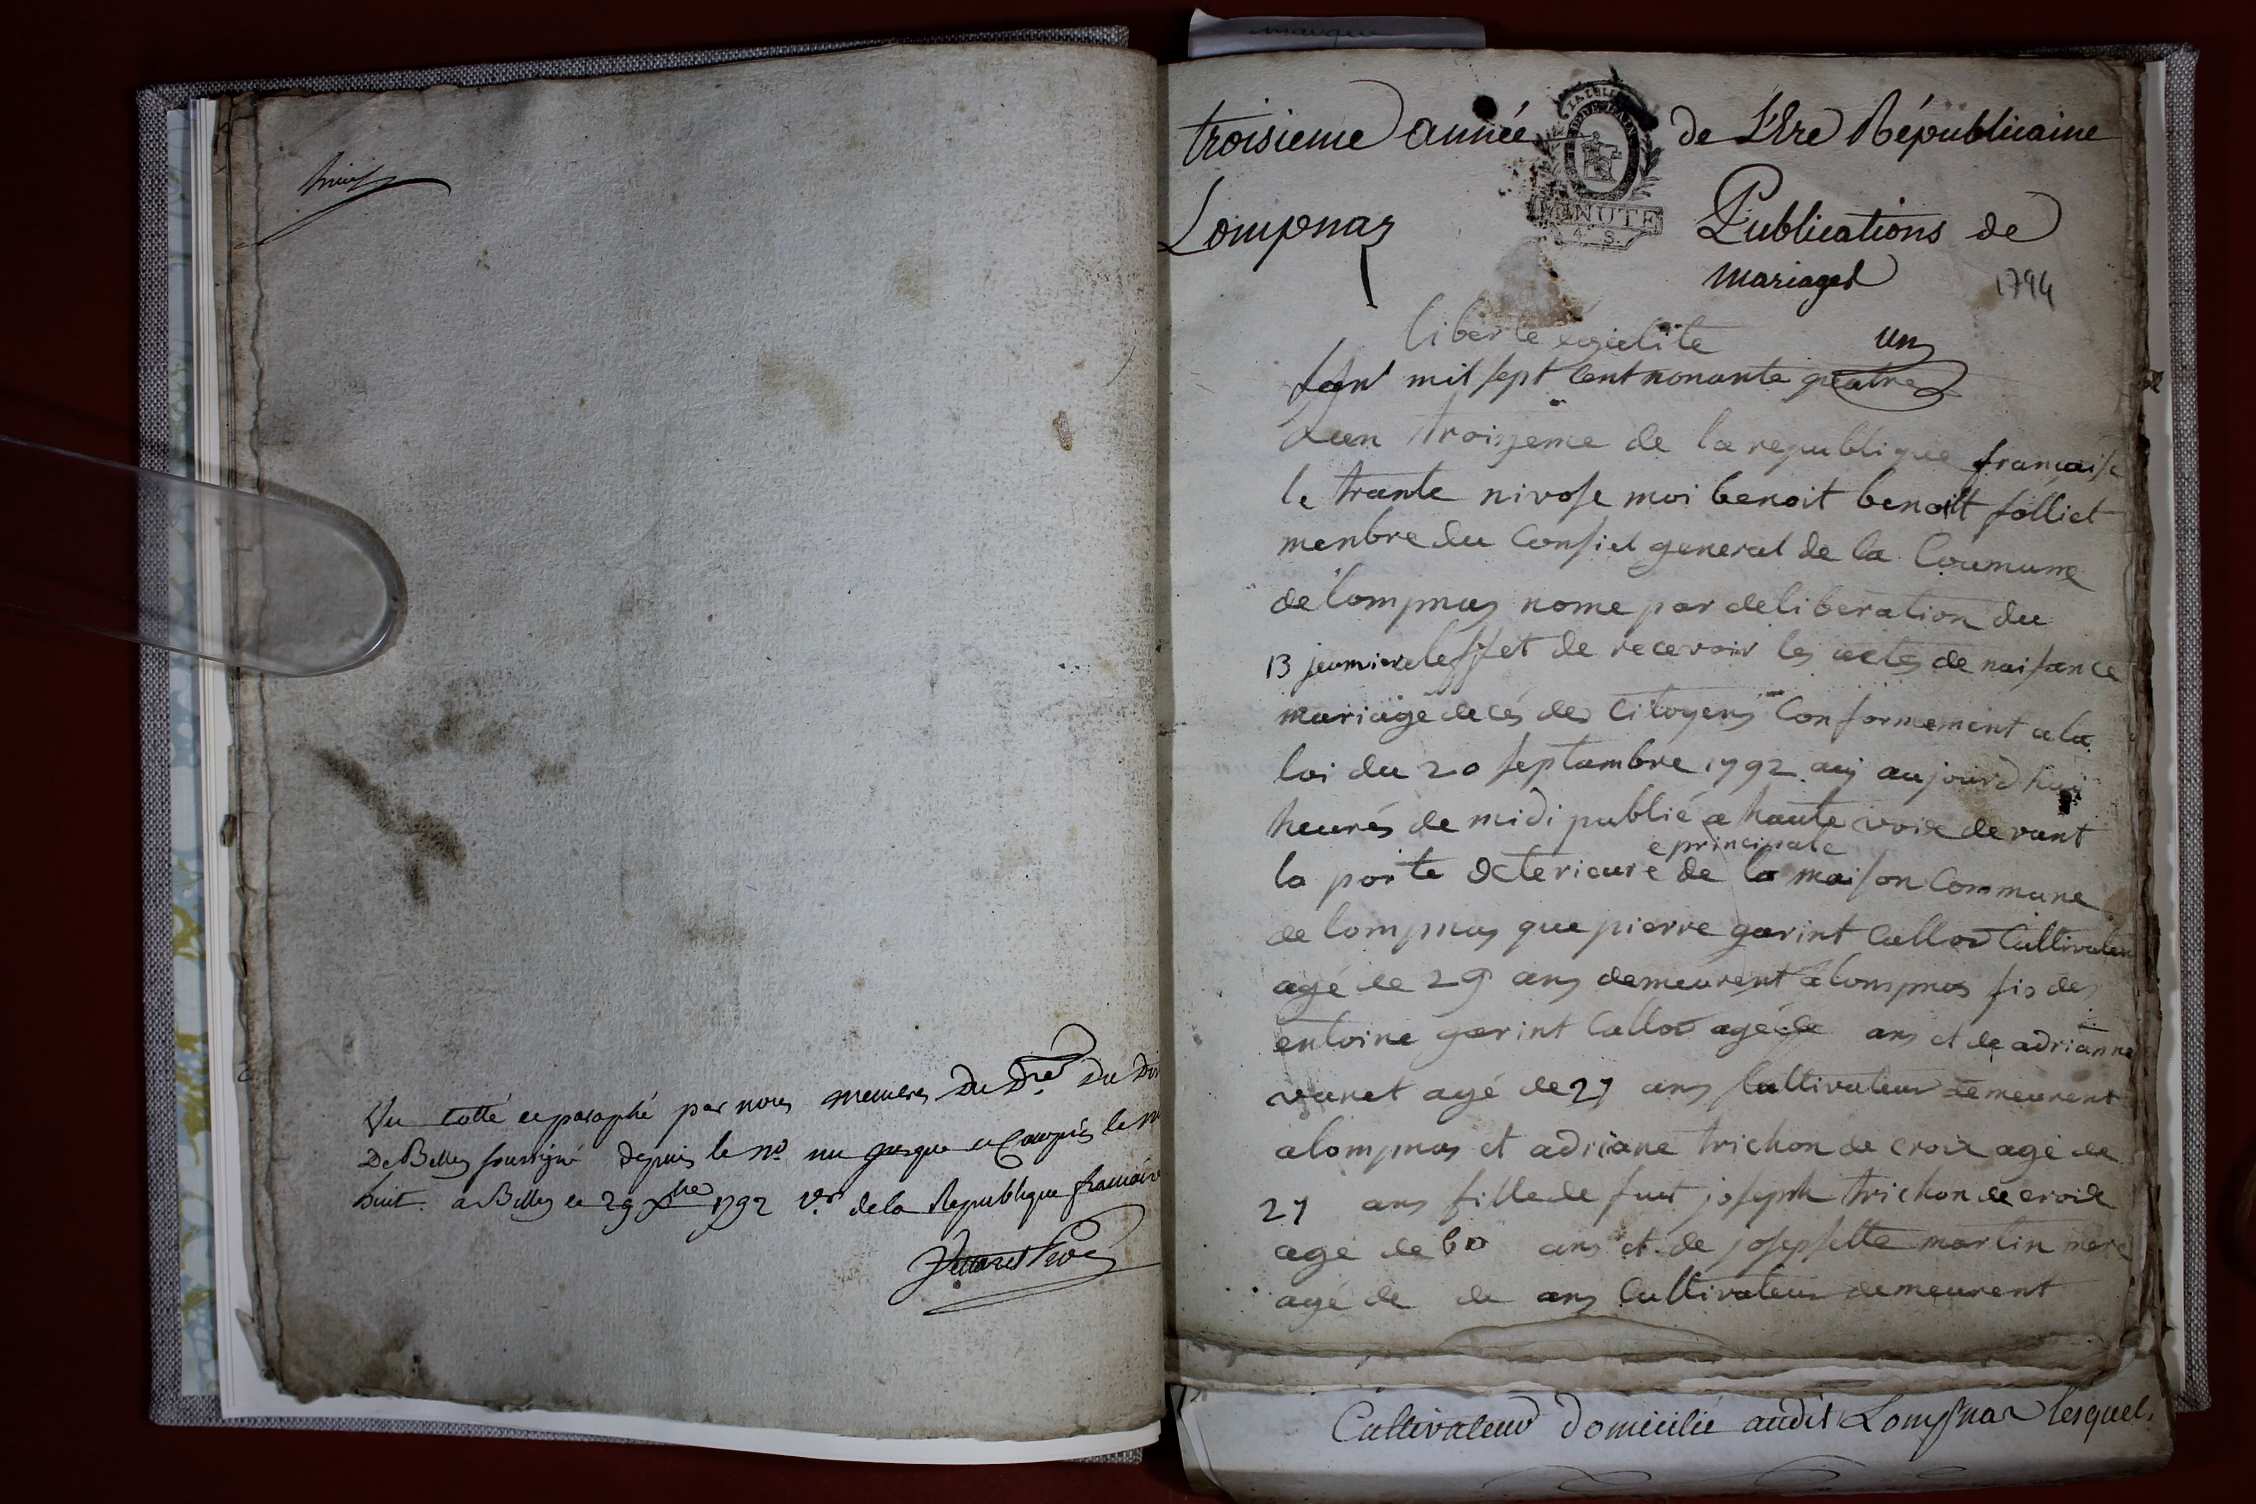 huit
Vu cotté et paraphé par nous membres Du D.re Du
De Belley soussigné depuis le n.o un jusque et Compris le
huit. a Belley le 29 Xbre 1792 1.er de la Republique francaise
manque
troisieme année de L'Ere Républicaine
MINUTE
4. S.
Lompnaz
Publications de
mariages
1794
liberte egalite
un
mil sept Cent nonante quatre
Lan troisieme de la republique francaise
le trante nivose moi benoit benoit folliet
menbre du Consiel general de la Coumune
de lompnas nome par deliberation du
13 leffet de recevoir les actes de naisance
mariage decés des Citoyens Conformement a la
loi du 20 septambre 1792 ay aujourdhui
heures de midi publié a haute voix devant
e principale
la porte exterieure de la maison Commune
de lompnas que pierre garint Callod Cultivateur
agé de 29 ans demeurent a lompnas fis de
entoine garint Callod agé de ans et de adrianne
vanet agé de 27 ans Cultivateur demeurent
a lompnas et adriane trichon de croix age de
27 ans fille de fut joseph trichon de croix
age de 60 ans et de josepfette martin mere
agé de de ans Cultivateur demeurent
Cultivateur domicilié audit Lompnas lesquel